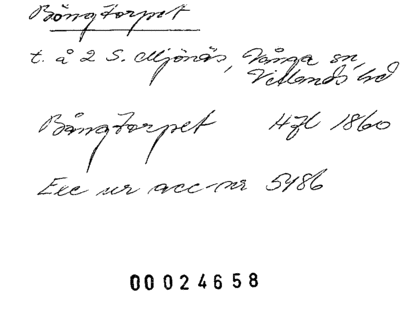 Bångtorpet
t. å 2 S. Mjönäs, Vånga sn,
Villands hd
Bångtorpet Hfl 1860
Exc ur acc-nr 5486
00024658